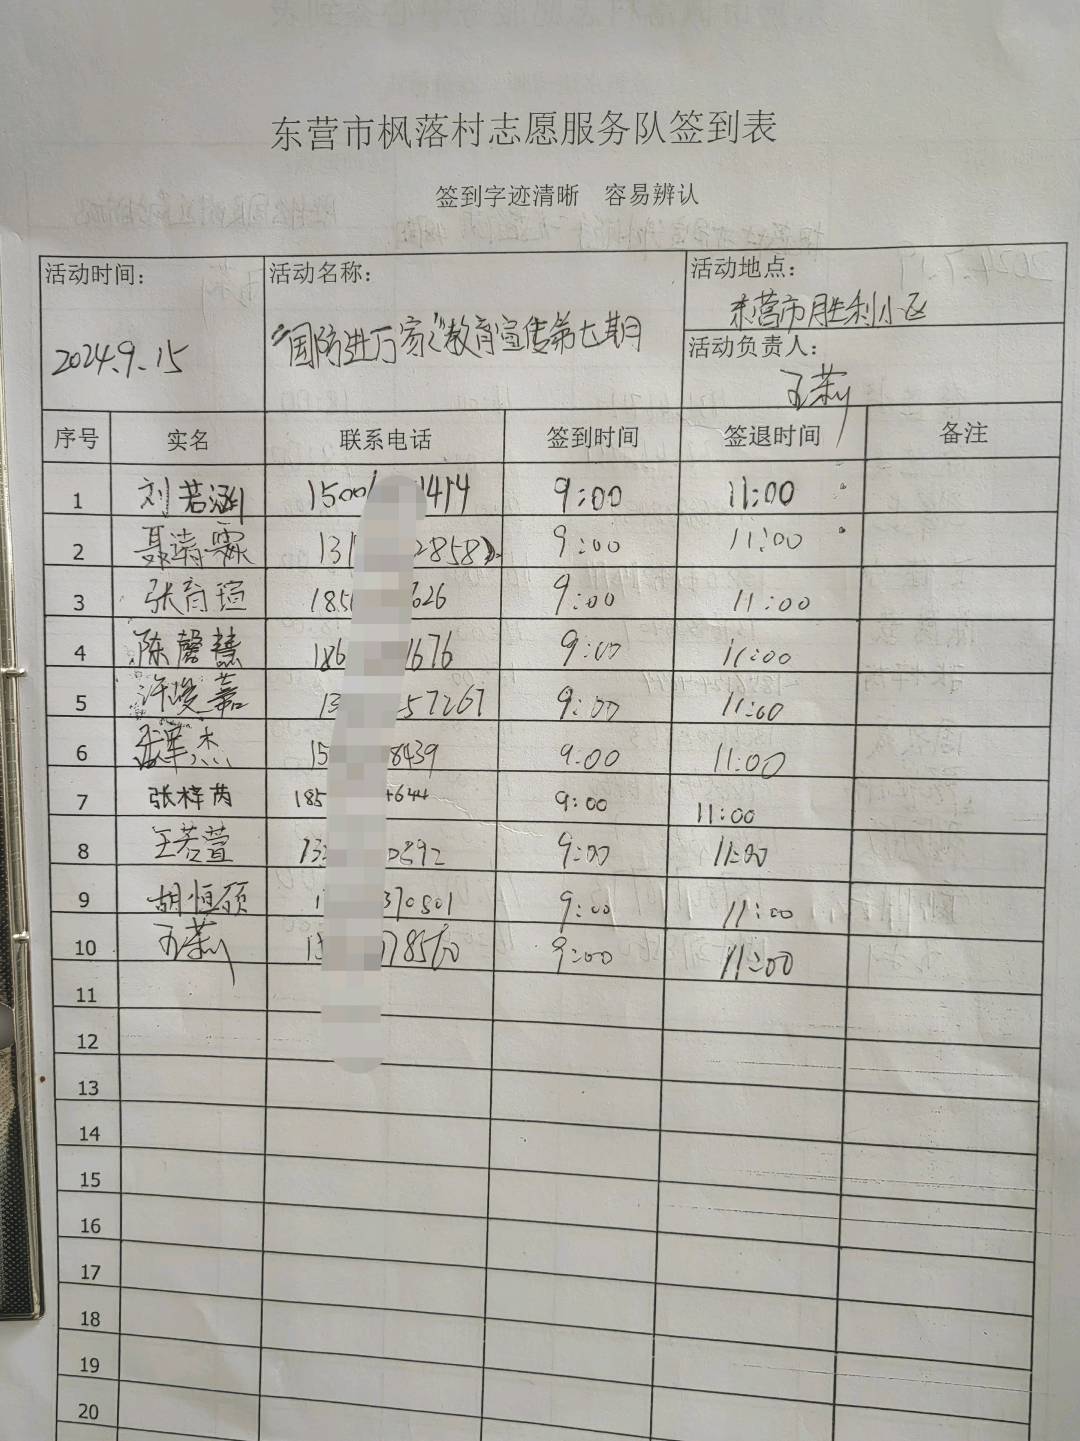 东营市枫落村志愿服务队签到表
签到字迹清晰 容易辨认
活动时间: 活动名称: 活动地点:
2024.9.15 “国防进万家”教育宣传第七期 东营市胜利小区
活动负责人:
王莉
序号 实名 联系电话 签到时间 签退时间 备注
1 刘若涵 1500 1414 9:00 11:00
2 聂清霖 13 2858 9:00 11:00
3 张育瑄 185 626 9:00 11:00
4 陈馨慧 186 1676 9:00 11:00
5 许峻嘉 13 57267 9:00 11:00
6 杰 15 8439 9:00 11:00
7 张梓芮 185 4644 9:00 11:00
8 王若萱 13 0892 9:00 11:00
9 胡恒硕 1 370501 9:00 11:00
10 王莉 15 9:00 11:00
11
12
13
14
15
16
17
18
19
20